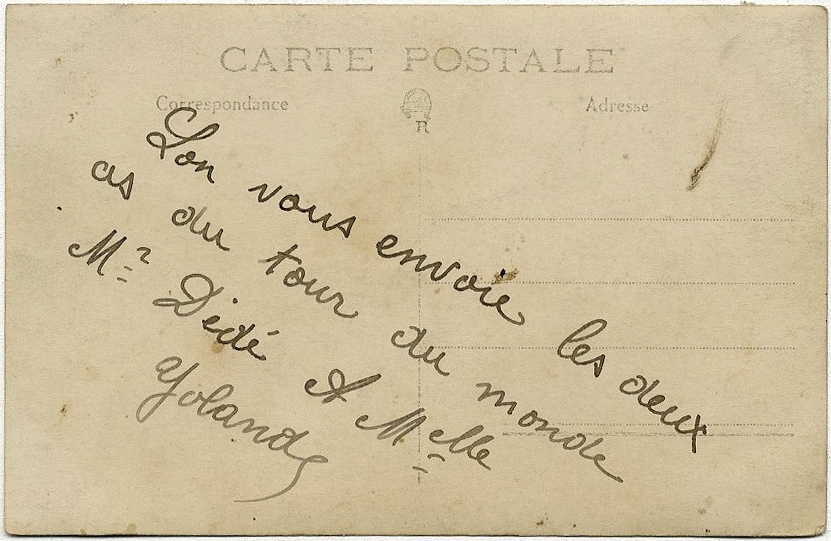 CARTE POSTALE
Correspondance
R
Adresse
Lon vous envoie les deux
as du tour du monde
Mr Dédé A Melle
Yolande